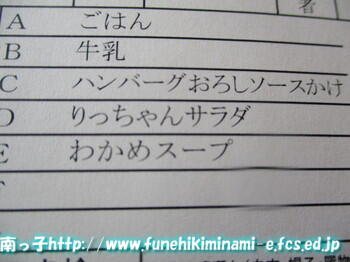 者
A ごはん
B 牛乳
C ハンバーグおろしソースかけ
D りっちゃんサラダ
E わかめスープ
F
南っ子http://www.funehikiminami-e.fcs.ed.jp